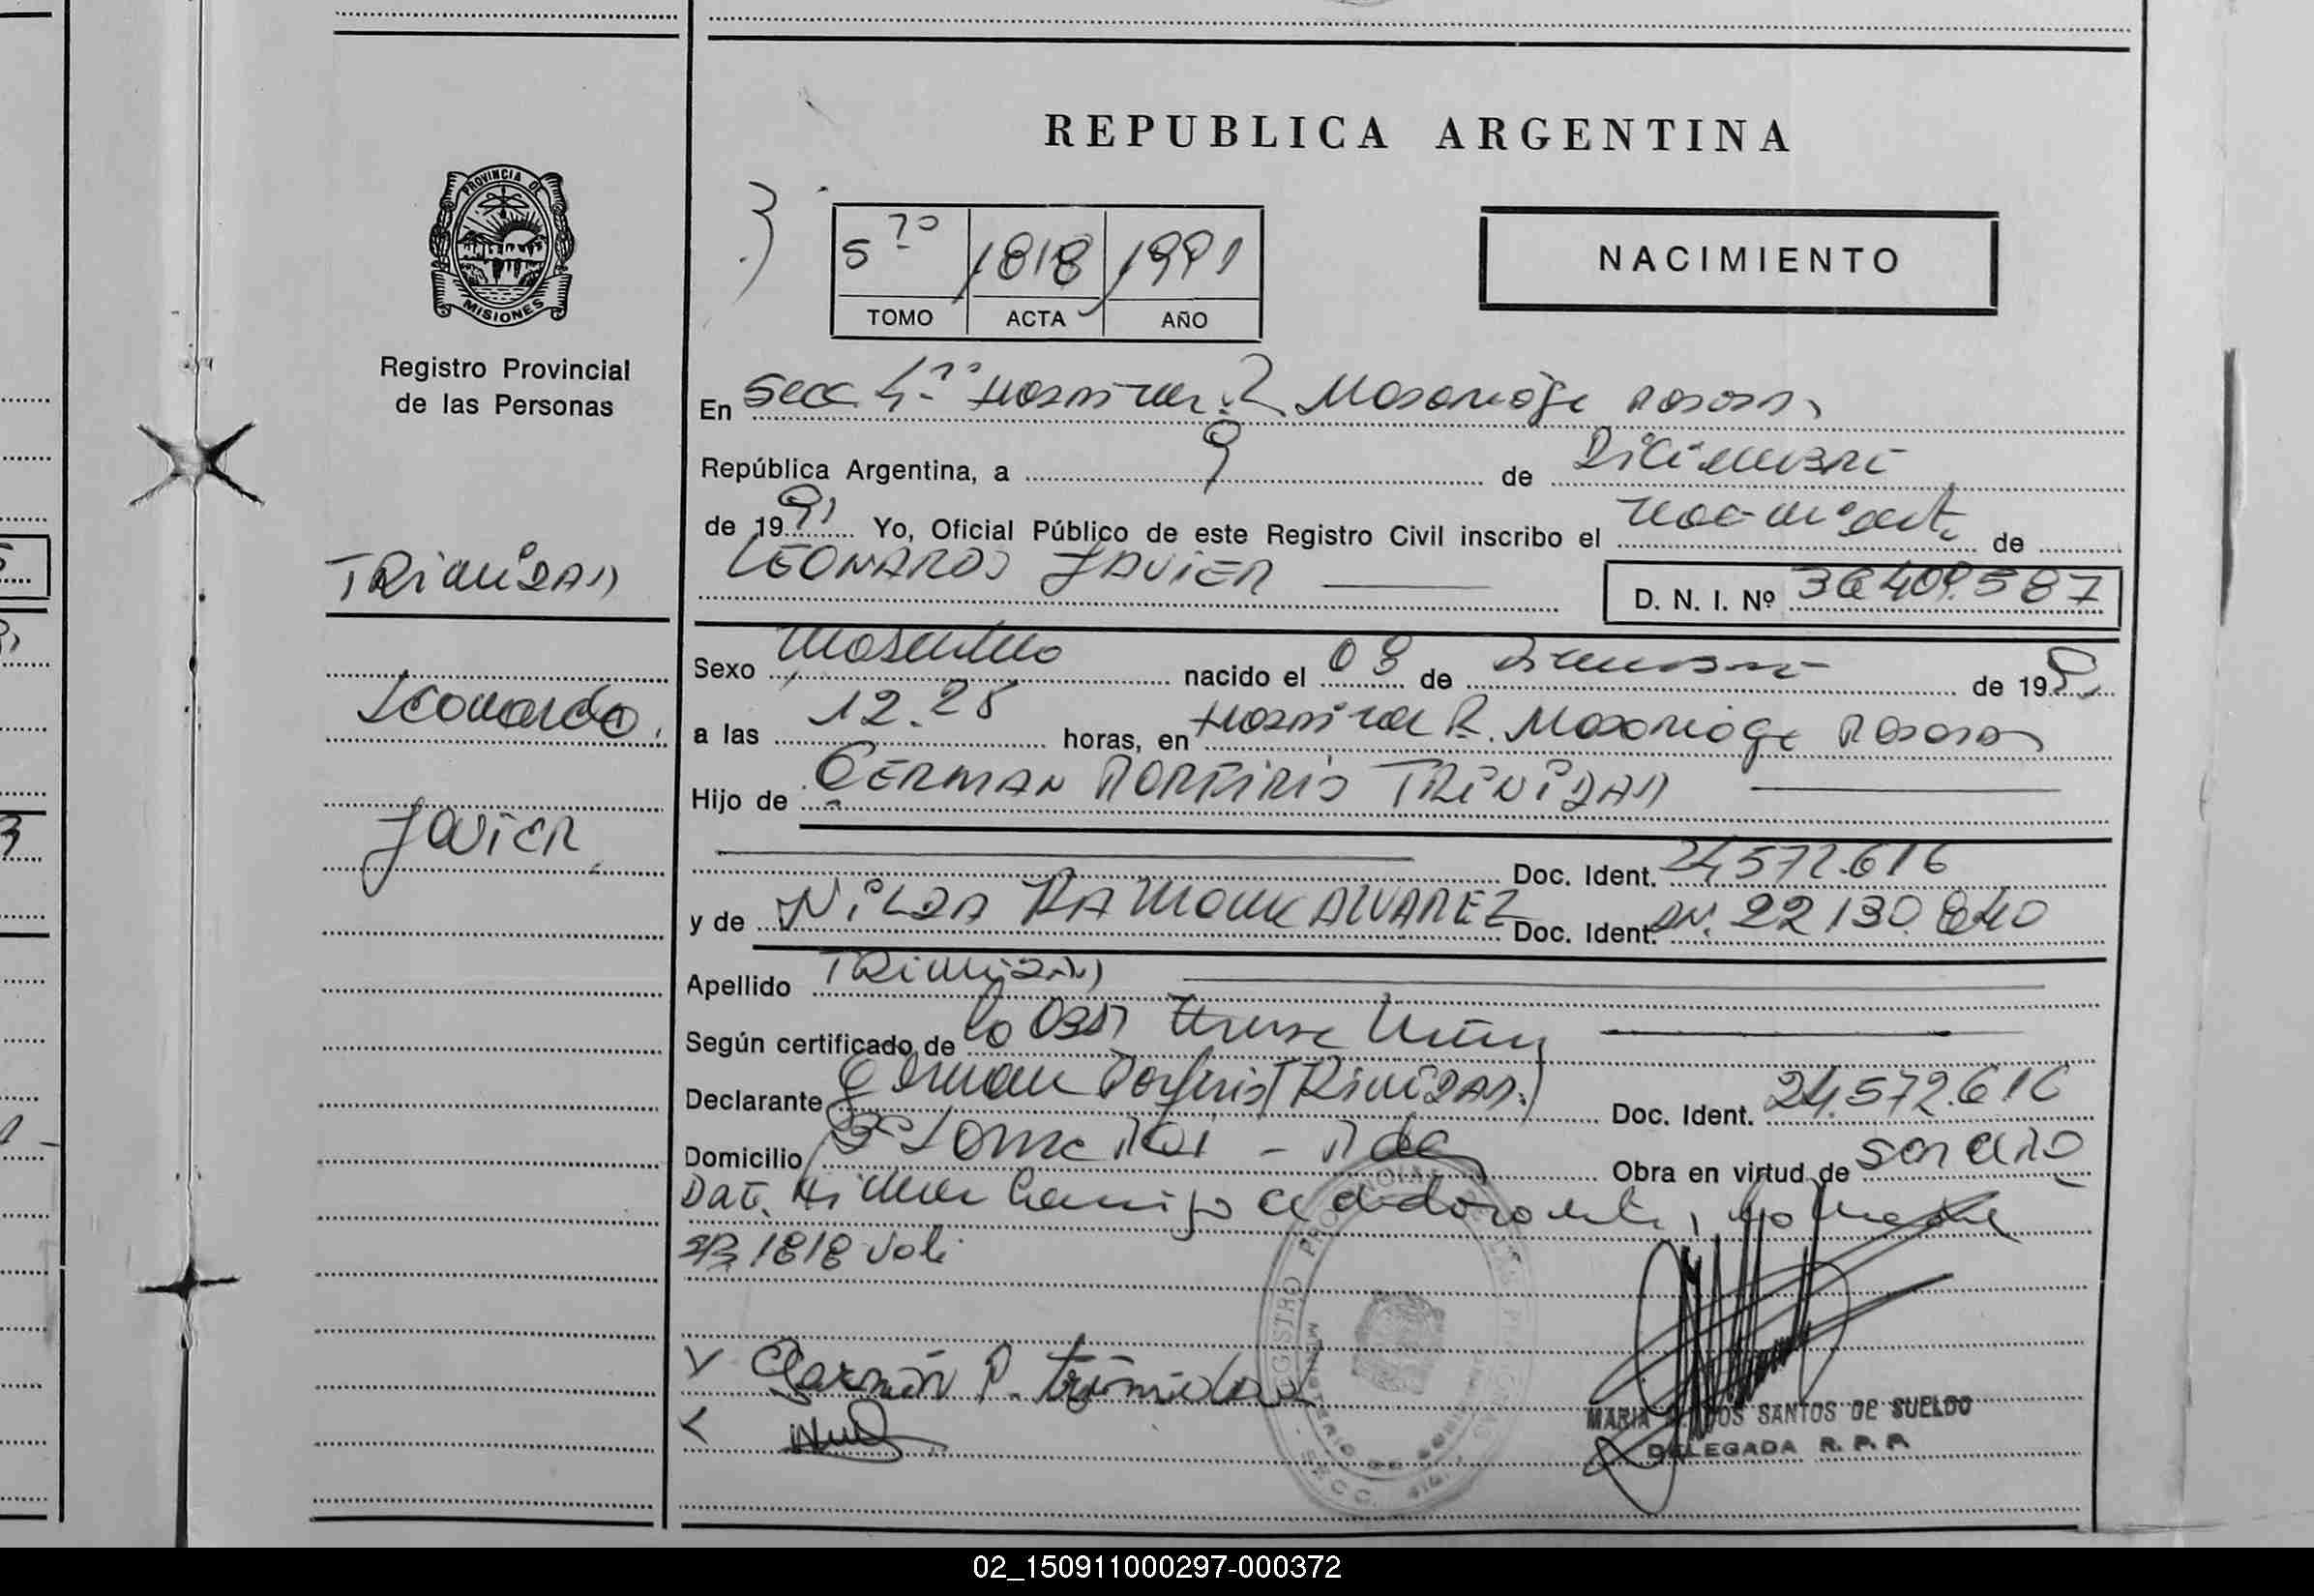 REPUBLICA ARGENTINA
PROVINCIA DE
MISIONES
Registro Provincial
de las Personas
5to 1818 1991
TOMO ACTA AÑO
NACIMIENTO
En Secc 4ta Hospital R. Madariaga Posadas
República Argentina, a 9 de Diciembre
de 1991 Yo, Oficial Público de este Registro Civil inscribo el nacimiento de
LEONARDO JAVIER D. N. I. Nº 36.409.587
TRiniDAD
Leonardo
JaviER
Sexo Masculino nacido el 03 de Diciembre de 1991
a las 12.25 horas, en Hospital R. Madariaga Posadas
Hijo de GERMAN PORFIRIO TRINIDAD
Doc. Ident. 24.572.616
y de NiLDA RAMONA ALVAREZ Doc. Ident. 22.130.840
Apellido TRiniDAD
Según certificado de la Obst Teresa
Declarante German Porfirio TRiniDAD Doc. Ident. 24.572.616
Domicilio Obra en virtud de ser el
1818 Vale
Germán P. trinidad
MARIA DOS SANTOS DE SUELDO
DELEGADA R. P. P.
02_150911000297-000372